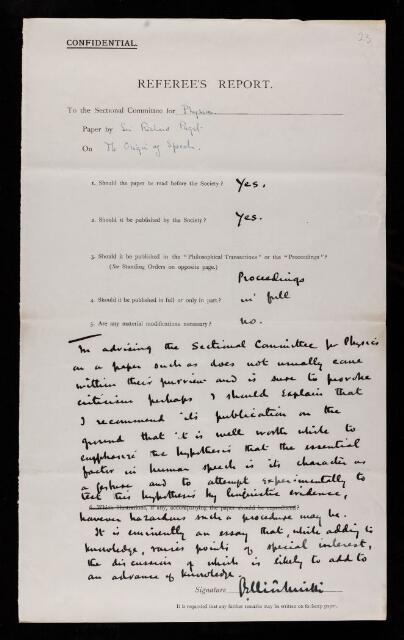 23
CONFIDENTIAL.
REFEREE'S REPORT.
To the Sectional Committee for Physics
Paper by Sir Richard Paget
On The Origin of Speech.
1. Should the paper be read before the Society? Yes.
2. Should it be published by the Society? Yes.
3. Should it be published in the "Philosophical Transactions" or the "Proceedings"?
(See Standing Orders on opposite page.)
Proceedings
4. Should it be published in full or only in part? in full
5. Are any material modifications necessary? no.
In advising the Sectional Committee for Physics
on a paper such as does not usually come
within their purview and is sure to provoke
criticism perhaps I should explain that
I recommend its publication on the
ground that it is well worth while to
emphasize the hypothesis that the essential
factor in human speech is its character as
a gesture and to attempt experimentally to
test this hypothesis by linguistic evidence,
6. Which illustrations, if any, accompanying the paper should be reproduced?
however hazardous such a procedure may be.
It is eminently an essay that, while adding to
knowledge, raises points of special interest,
the discussion of which is likely to add to
an advance of knowledge.
Signature
It is requested that any further remarks may be written on foolscap paper.